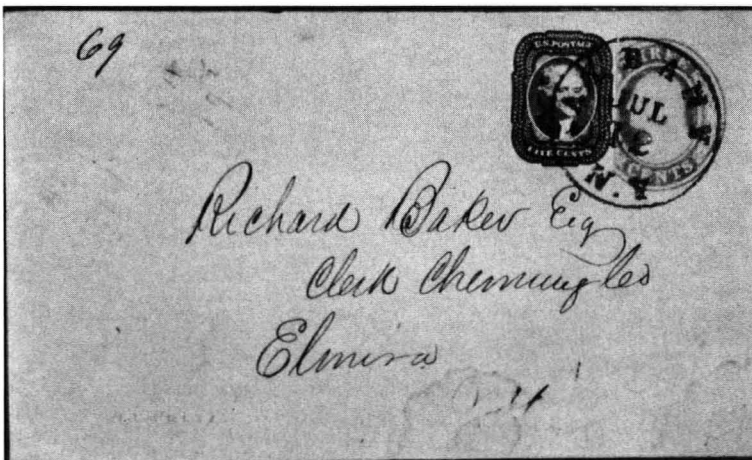 69
U.S. POSTAGE
FIVE CENTS
ALBANY
JUL
12
N.Y.
CENTS
Richard Baker Esq
Clerk Chemung Co
Elmira